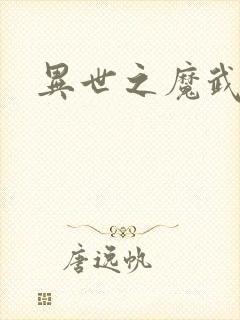 異世之魔武
唐逸帆